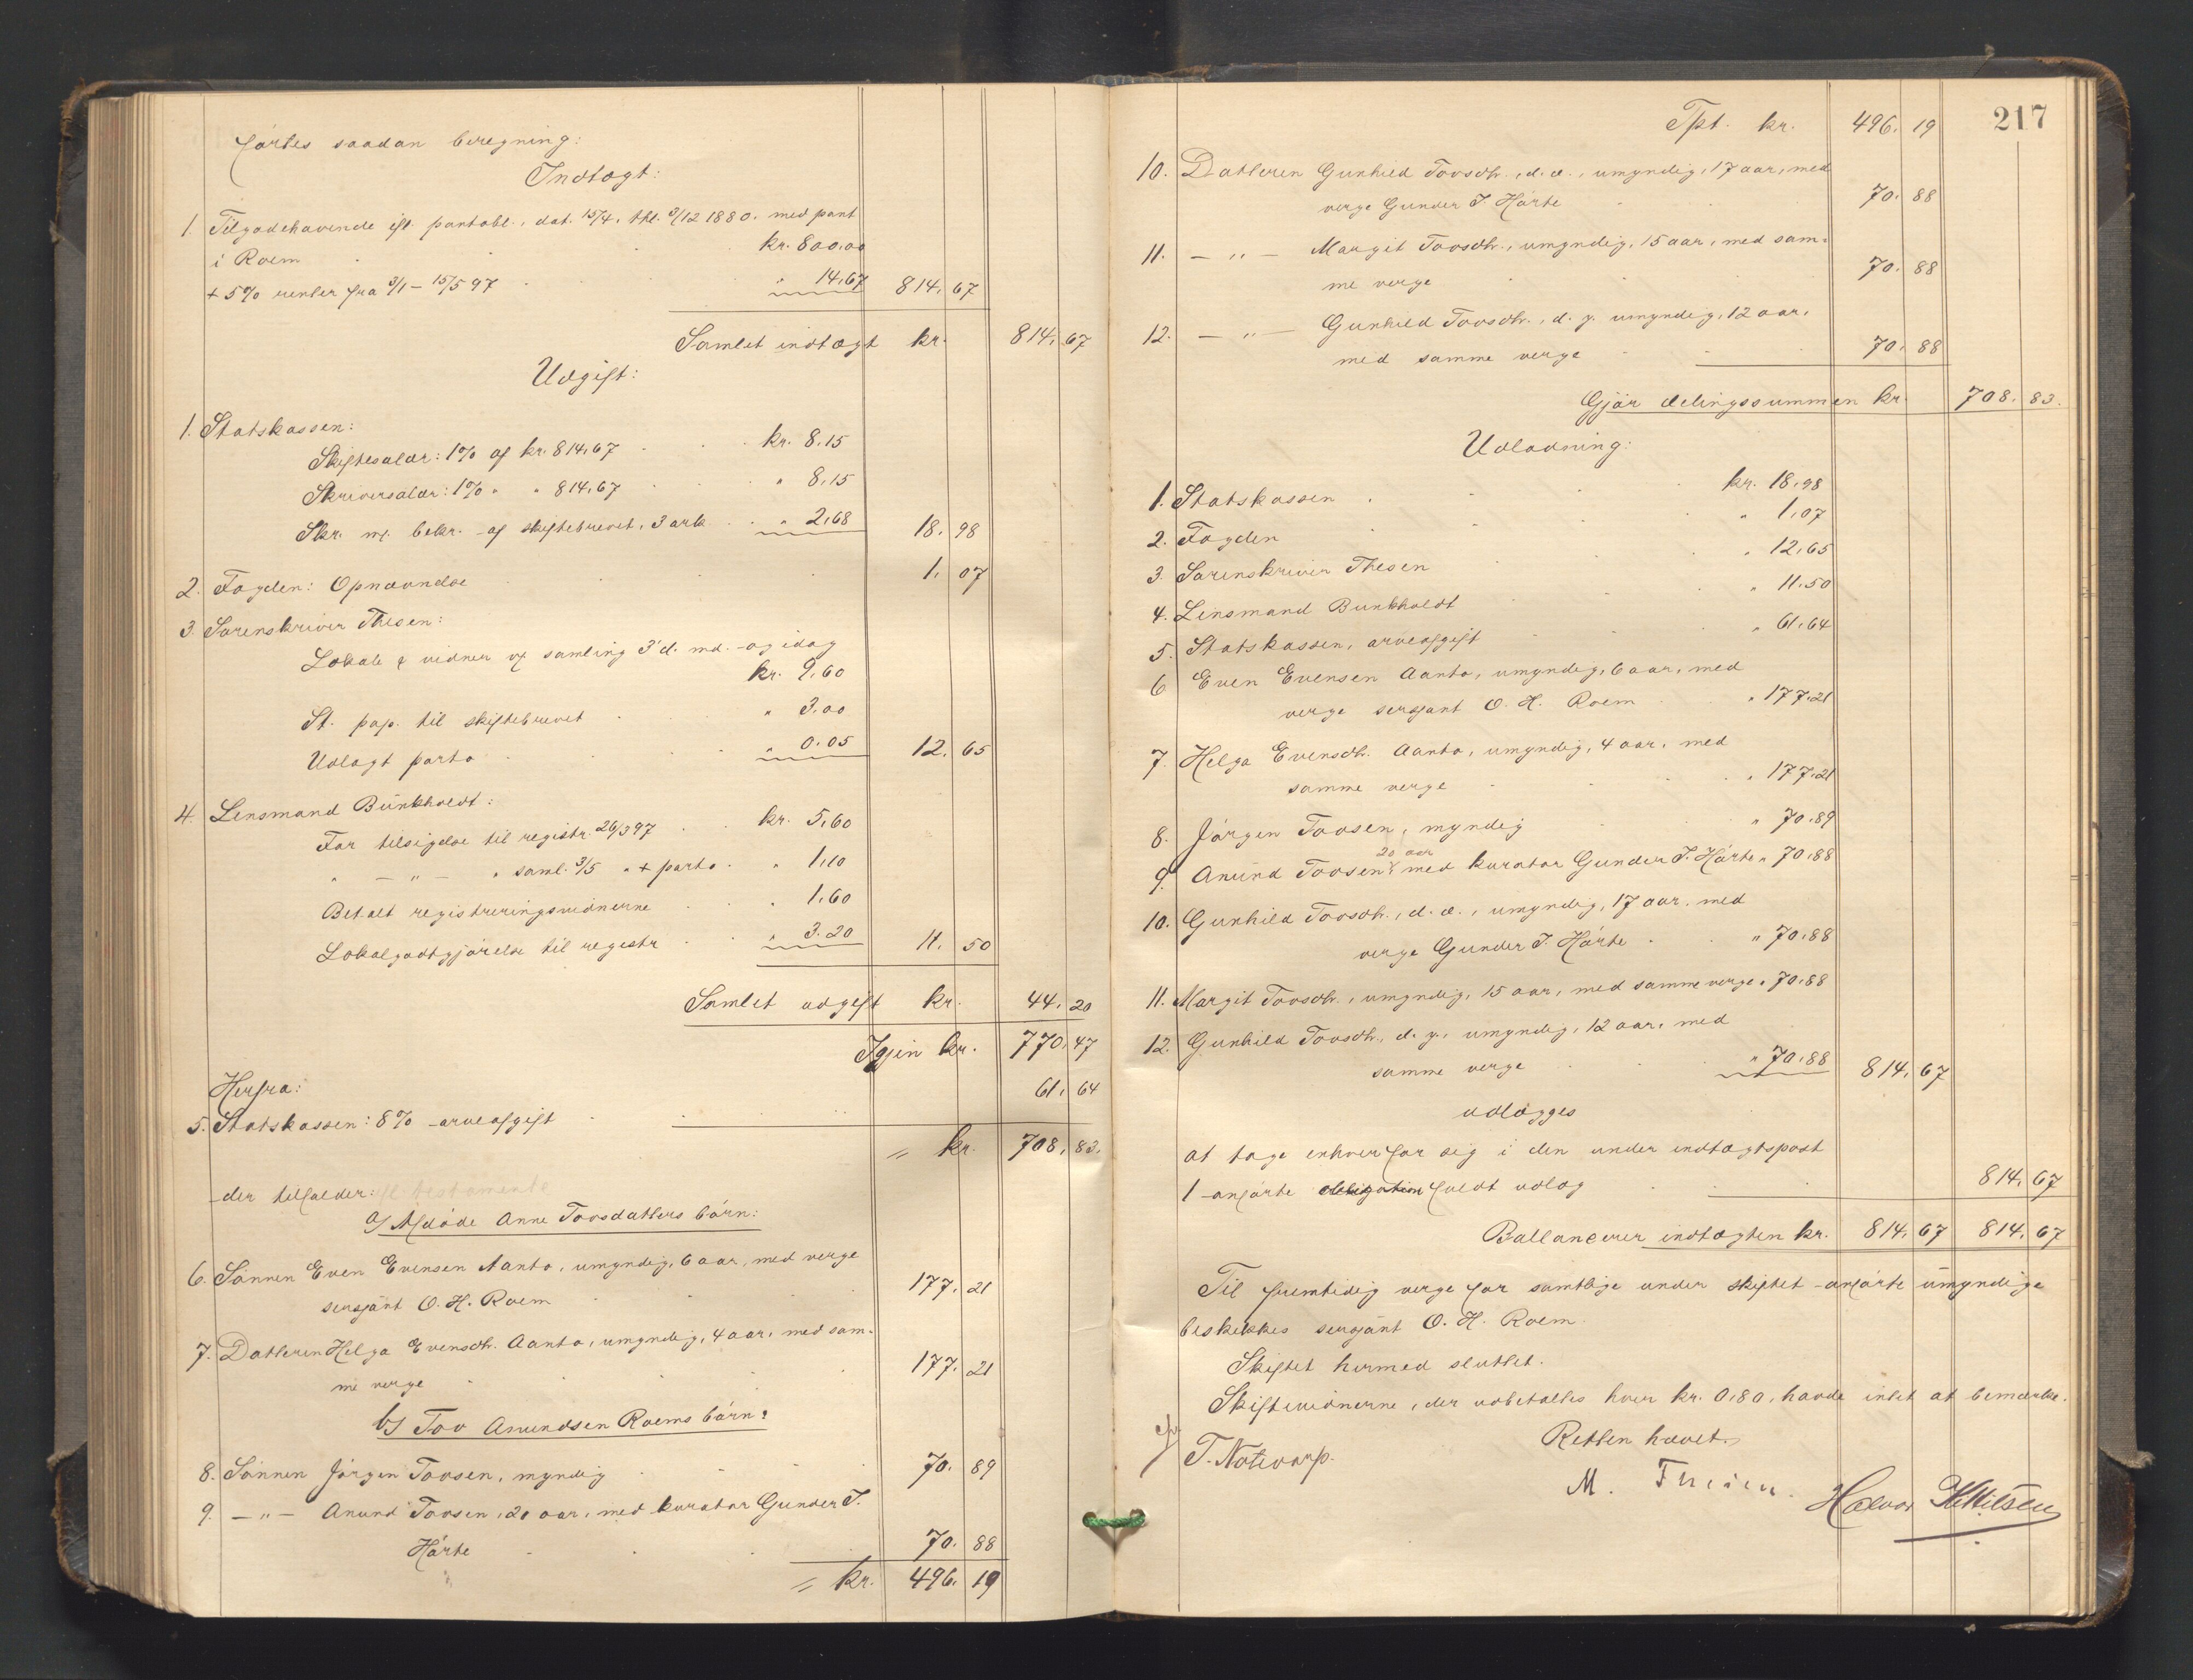 førtes saadan beregning:
Indtægt:
1. Tilgodehavende ifl. pantobl., dat. 15/4, thl. 3/12 1880, med pant
i Roem kr. 800,00
+ 5% renter fra 3/1 - 15/5 97 " 14,67 814,67
Samlet indtægt kr. 814,67
Udgift:
1. Statskassen:
Skiftesalær: 1% af kr. 814,67 kr. 8,15
Skriversalær: 1% " " 814,67 " 8,15
Skr. m. bekr. af skiftebrevet, 3 ark " 2,68 18,98
2. Fogden: Opnævnelse 1,07
3. Sorenskriver Thesen:
Lokale & vidner v. samling 3' d. md. og idag
kr. 9,60
St. pap. til skiftebrevet " 3,00
Udlagt porto " 0,05 12,65
4. Lensmand Bunkholdt:
For tilsigelse til registr. 26/3 97 kr. 5,60
" — " — " saml. 3/5 " + porto " 1,10
Betalt registreringsvidnerne " 1,60
Lokalgodtgjørelse til registr " 3,20 11,50
Samlet udgift kr. 44,20
Igjen kr. 770,47
Herfra:
5. Statskassen: 8% arveafgift 61,64
= kr. 708,83.
der tilfalder: ifl. testamente
a/ Afdøde Anne Tovsdatters børn:
6. Sønnen Even Evensen Aanto, umyndig, 6 aar, med verge
sersjant O. H. Roem 177,21
7. Datteren Helga Evensdtr. Aanto, umyndig, 4 aar, med sam-
me verge 177,21
b/ Tov Anundsen Roems børn:
8. Sønnen Jörgen Tovsen, myndig 70,89
9. — " — Anund Tovsen, 20 aar, med kurator Gunder T.
Hörte 70,88
= kr. 496,19
217
Tpt. kr. 496,19
10. Datteren Gunhild Tovsdtr., d. æ., umyndig, 17 aar, med
verge Gunder T. Hörte 70,88
11. — " — Margit Tovsdtr., umyndig, 15 aar, med sam-
me verge 70,88
12. — " — Gunhild Tovsdtr., d. y. umyndig, 12 aar,
med samme verge 70,88
Gjör delingssummen kr. 708,83.
Udlodning:
1. Statskassen kr. 18,98
2. Fogden " 1,07
3. Sorenskriver Thesen " 12,65
4. Lensmand Bunkholdt " 11,50
5. Statskassen, arveafgift " 61,64
6 Even Evensen Aanto, umyndig, 6 aar, med
verge sersjant O. H. Roem " 177,21
7. Helga Evensdtr. Aanto, umyndig, 4 aar, med
samme verge " 177,21
8. Jörgen Tovsen, myndig " 70,89
20 aar
9. Anund Tovsen, med kurator Gunder T. Hörte " 70,88
10. Gunhild Tovsdtr., d. æ., umyndig, 17 aar, med
verge Gunder T. Hörte " 70,88
11. Margit Tovsdtr., umyndig, 15 aar, med samme verge " 70,88
12. Gunhild Tovsdtr., d. y., umyndig, 12 aar, med
samme verge " 70,88 814,67
udlægges
at tage enhver for sig i den under indtægtspost
1 anførte obligation fuldt udlæg 814,67
Ballancerer indtægten kr. 814,67 814,67
Til fremtidig verge for samtlige under skiftet anførte umyndige
beskikkes sersjant O. H. Roem.
Skiftet hermed sluttet.
Skiftevidnerne, der udbetaltes hver kr. 0,80, havde intet at bemærke.
Retten hævet.
T. Notevarp.
M. Thesen.
Halvor Kittilsen